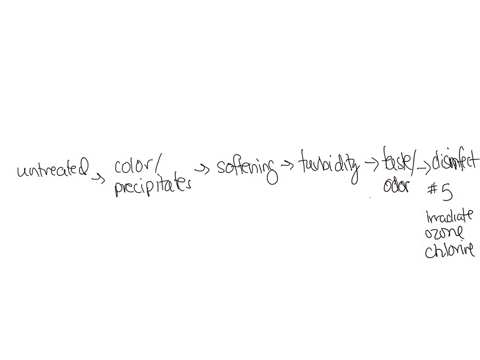 untreated → color/ → softening → turbidity → taste/ → disinfect
precipitates odor #5
irradiate
ozone
chlorine